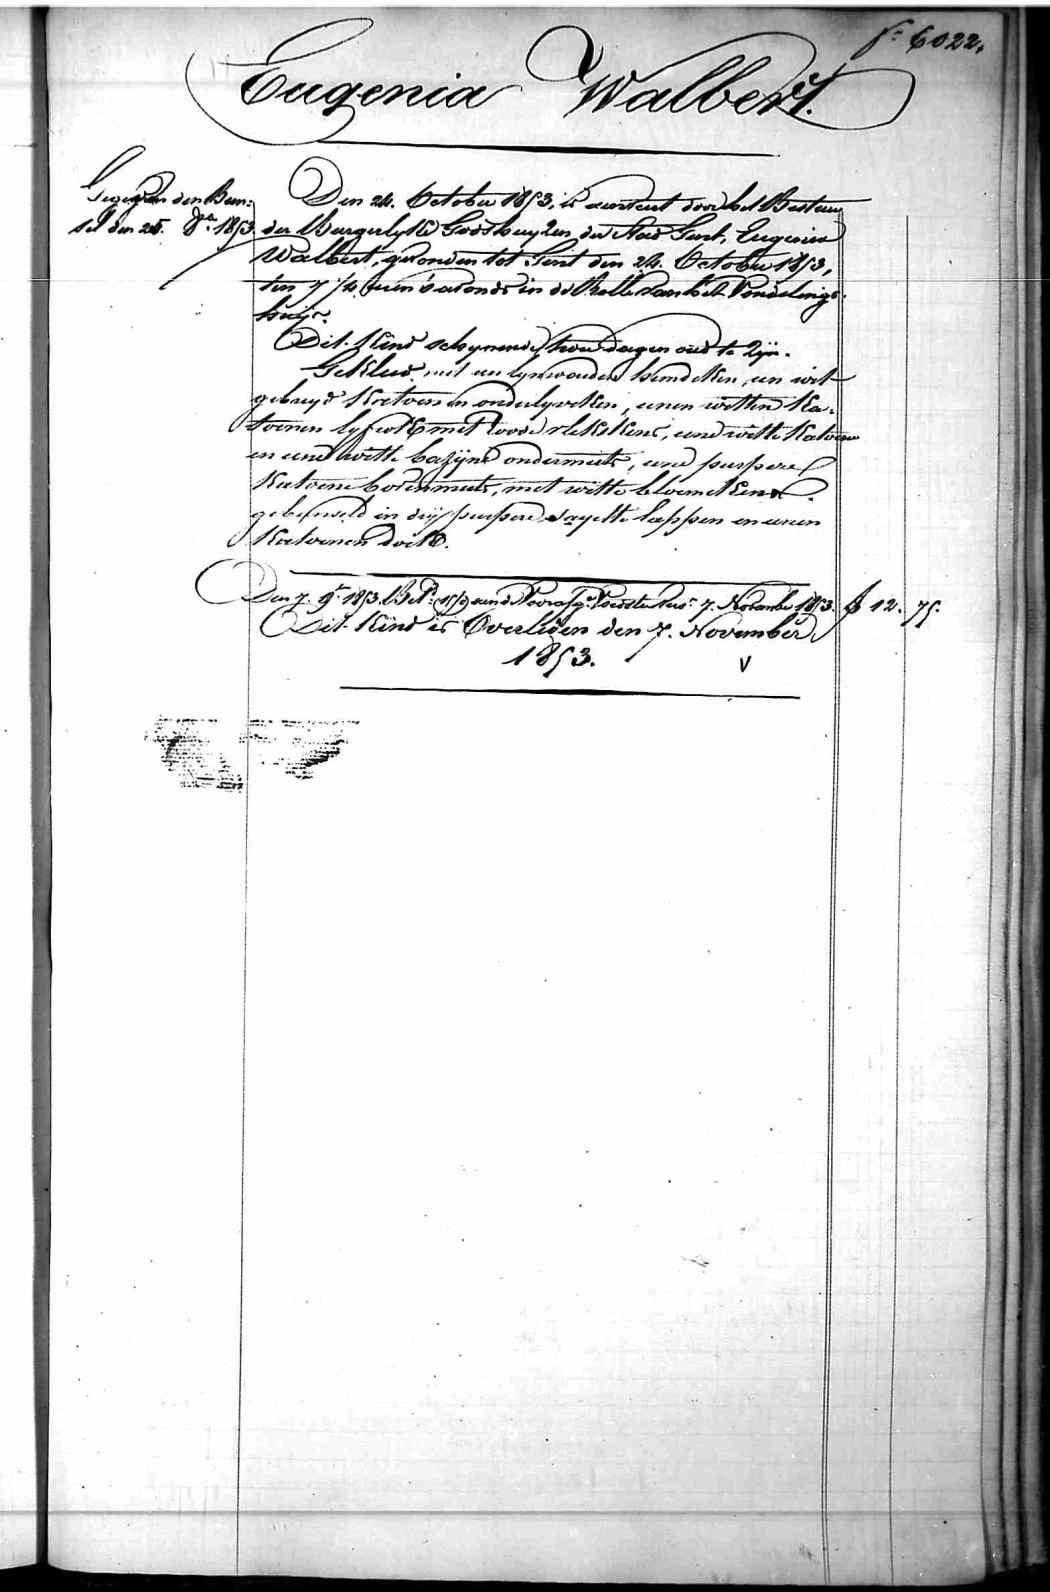 f.º 6022.
Eugenia Walbert.
den
sel den 25. 8bre 1853.
Den 24. October 1853. is aenveert door het Bestuer
der Burgerlyke Godshuyzen der Stad Gent, Eugenia
Walbert, gevonden tot Gent den 24. October 1853,
ten 7 1/4 uren 's avonds in de Rolle van het Vondelings-
huys.
Dit Kind schynende twee dagen oud te zyn.
Gekleed met een lynwaeden hemdeken, een wit
gebreyd Katoenen onderlyveken, eenen witten Ka-
toenen lyfrok met roode vlekskens, eene witte Katoene
en eene witte bazyne ondermuts, eene purpere
Katoene bovenmuts, met witte bloemekens.
gebusseld in dry purpere sayette lappen en eenen
Katoenen doek.
Den 7. 9bre 1853. 7. November 1853. f 12. 75.
Dit Kind is Overleden den 7. November
1853. V